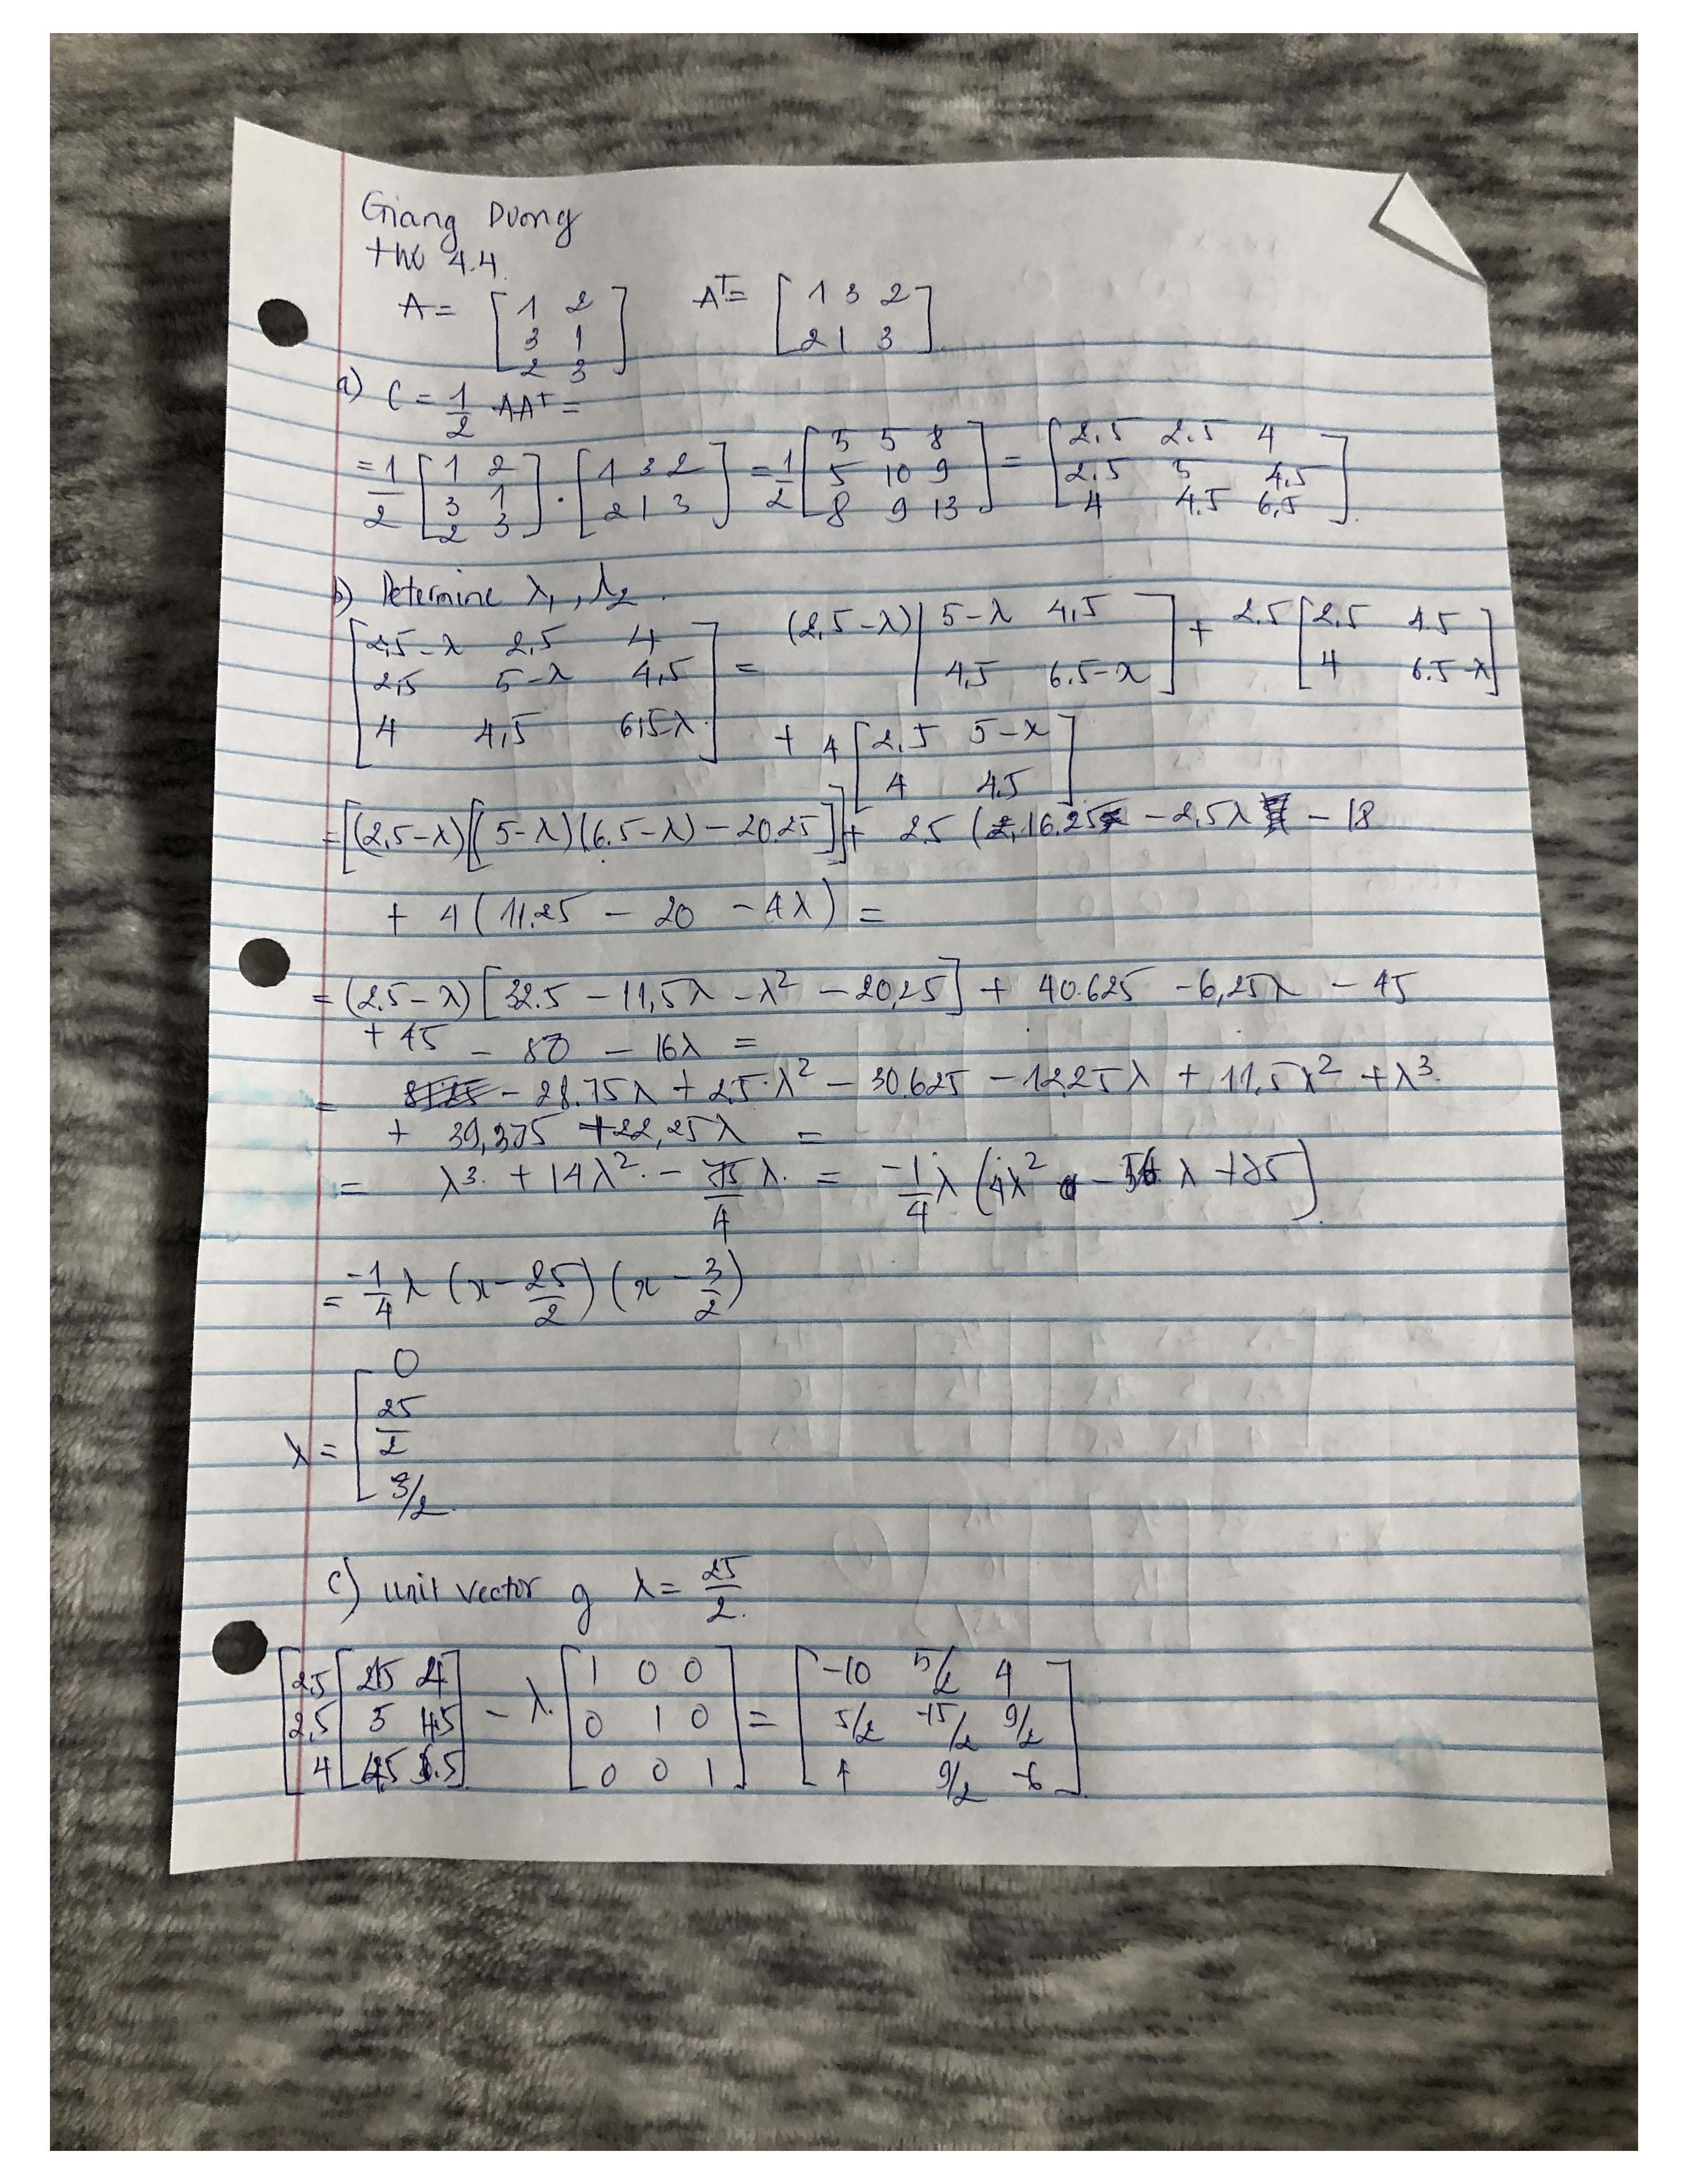 Giang Duong
HW 4.4.
A = [1 2; 3 1; 2 3] Aᵀ = [1 3 2; 2 1 3].
a) C = 1/2 · AAᵀ =
= 1/2 [1 2; 3 1; 2 3] · [1 3 2; 2 1 3] = 1/2 [5 5 8; 5 10 9; 8 9 13] = [2.5 2.5 4; 2.5 5 4.5; 4 4.5 6.5].
b) Determine λ₁, λ₂.
[2.5-λ 2.5 4; 2.5 5-λ 4.5; 4 4.5 6.5-λ] = (2.5-λ) [5-λ 4.5; 4.5 6.5-λ] + 2.5 [2.5 4.5; 4 6.5-λ]
+ 4 [2.5 5-λ; 4 4.5]
= [(2.5-λ)[(5-λ)(6.5-λ) - 20.25]] + 2.5 (16.25 - 2.5λ - 18
+ 4 (11.25 - 20 - 4λ) =
= (2.5-λ) [32.5 - 11.5λ - λ² - 20.25] + 40.625 - 6.25λ - 45
+ 45 - 80 - 16λ =
= - 28.75λ + 2.5·λ² - 30.625 - 12.25λ + 11.5λ² + λ³.
+ 39.375 + 22.25λ =
= λ³ + 14λ² - 75/4 λ. = -1/4 λ (4λ² - 56 λ + 75)
= -1/4 λ (x - 25/2) (x - 3/2)
λ = [0; 25/2; 3/2.
c) unit vector g λ = 25/2.
[2.5 2.5 4; 2.5 5 4.5; 4 4.5 6.5] - λ. [1 0 0; 0 1 0; 0 0 1] = [-10 5/2 4; 5/2 -15/2 9/2; 4 9/2 -6].